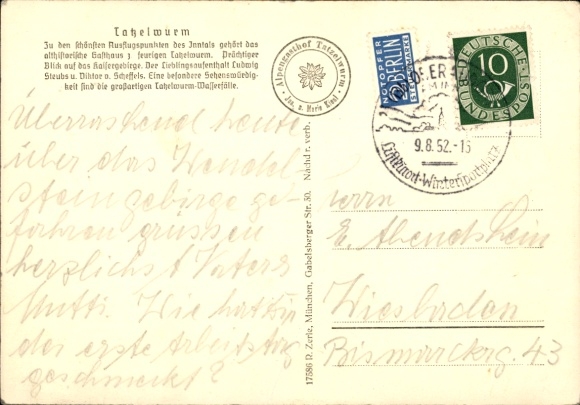 Tatzelwurm
Zu den schönsten Ausflugspunkten des Inntals gehört das
althistorische Gasthaus z. feurigen Tatzelwurm. Prächtiger
Blick auf das Kaisergebirge. Der Lieblingsaufenthalt Ludwig
Steubs u. Viktor v. Scheffels. Eine besondere Sehenswürdig-
keit sind die großartigen Tatzelwurm-Wasserfälle.
Alpengasthof Tatzelwurm
Jos. u. Maria Kiesl
Überraschend heute
über das Wendel
steingebirge ge-
fahren grüssen
herzlichst Vater &
Mutti. Wie hat Dir
der erste Arbeitstag
geschmeckt?
17586 D. Zerle, München, Gabelsberger Str. 50. Nachdr. verb.
NOTOPFER
2 BERLIN
STEUERMARKE
DEUTSCHE
BUNDESPOST
10
9.8.52.-15
Luftkurort-Wintersportplatz
Herrn
E. Abendschein
Wiesbaden
Bismarckrg. 43